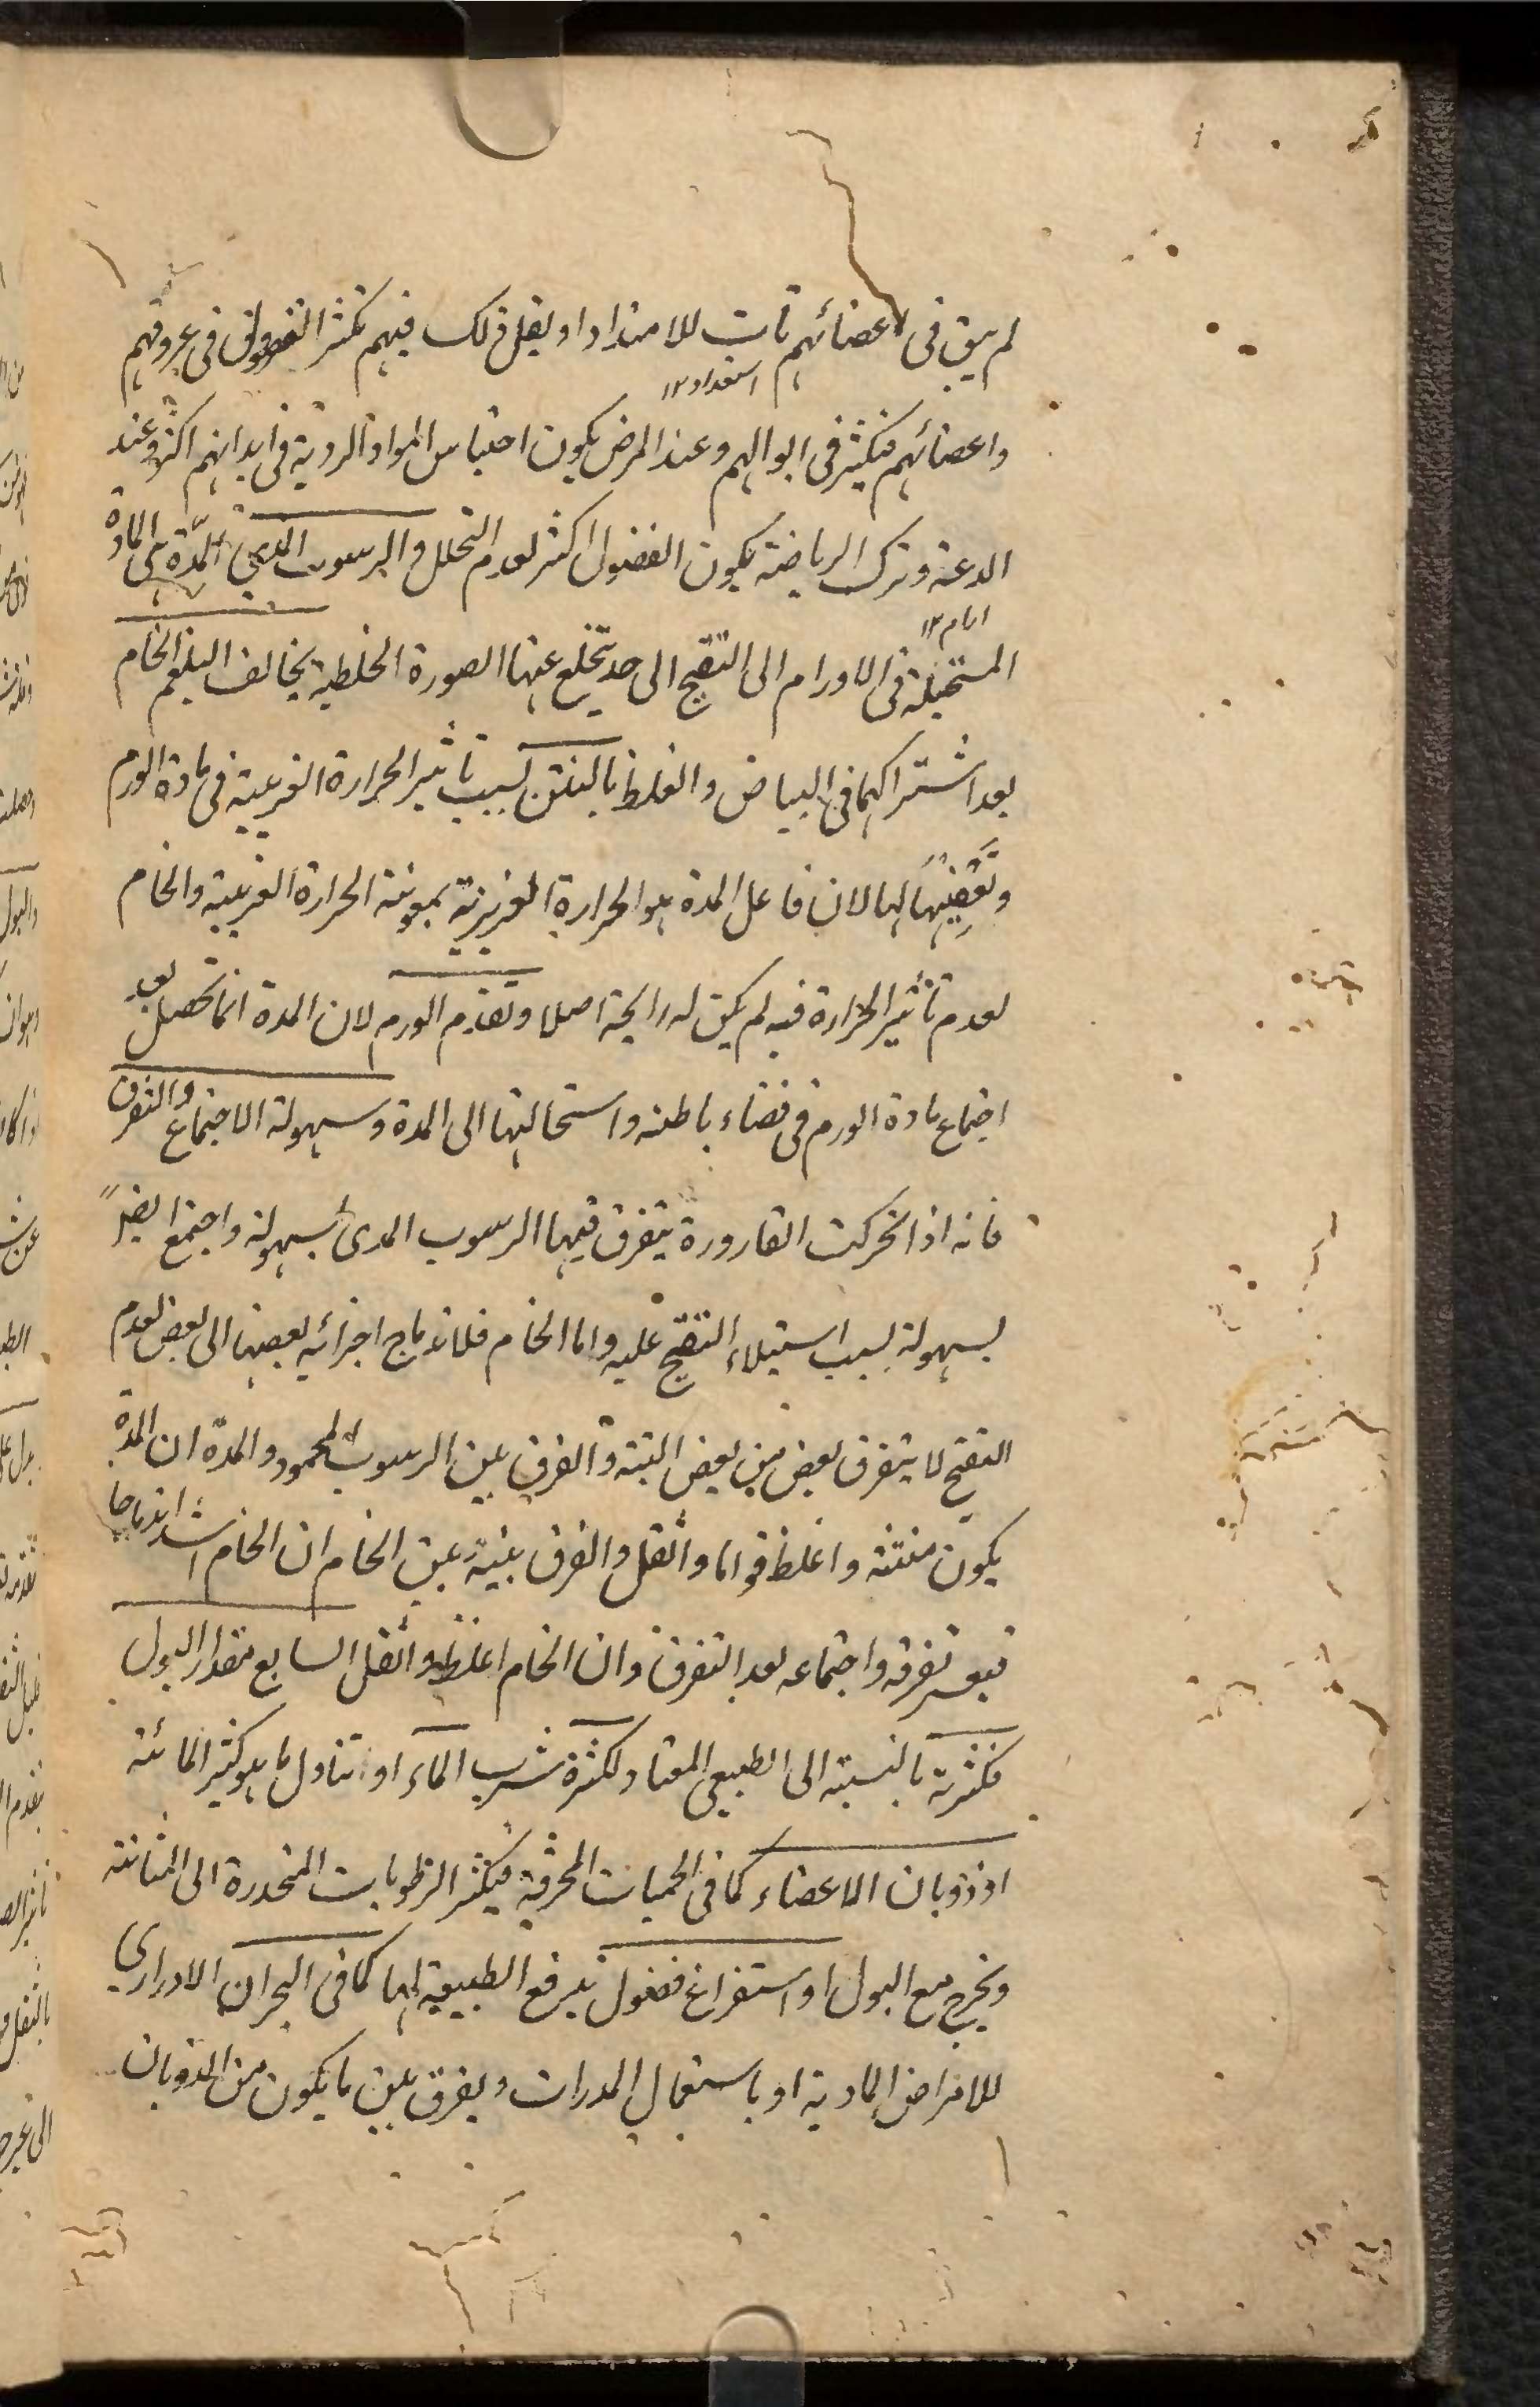 لم يبق فى اعضائهم تأت للامتداد او يقل ذلك فيهم تكثر الفضول فى عروقهم
استعداد ١٢
واعضائهم فتكثر فى ابوالهم وعند المرض يكون احتباس المواد الردية فى ابدانهم اكثر وعند
الدعة وترك الرياضة يكون الفضول اكثر لعدم التحلل والرسوب المدى المدة هى المادة
المستحيلة فى الاورام الى التقيح الى حد تخلع عنها الصورة الخلطية يخالف البلغم الخام
بعد اشتراكهما فى البياض والغلظ بالنتن بسبب تأثير الحرارة الغريبة فى مادة الورم
وتعفينها لها لان فاعل المدة هو الحرارة الغريزية بمعونة الحرارة الغريبة والخام
لعدم تأثير الحرارة فيه لم يكن له رايحة اصلا وتقدم الورم لان المدة انما تحصل بعد
اجتماع مادة الورم فى فضاء باطنه واستحالتها الى المدة وسهولة الاجتماع والتفرق
فانه اذا تحركت القارورة يتفرق فيها الرسوب المدى بسهولة واجتمع ايضاً
بسهولة بسبب استيلاء التقيح عليه واما الخام فلاندماج اجزائه بعضها الى بعض لعدم
التقيح لا يتفرق بعض من بعض البتة والفرق بين الرسوب المحمود والمدة ان المدة
يكون منتنة واغلظ قواما واثقل والفرق بينه وبين الخام ان الخام اشد اندماجا
فيعسر تفرقه واجتماعه بعد التفرق وان الخام اغلظ واثقل السابع مقدار البول
فكثرته بالنسبة الى الطبيعى المعتاد لكثرة شرب الماء او تناول ما هو كثير المائية
او ذوبان الاعضاء كما فى الحميات المحرقة فيكثر الرطوبات المنحدرة الى المثانة
ويخرج مع البول او استفراغ فضول بدفع الطبيعة لها كما فى البحران الادرارى
للامراض المادية او باستعمال المدرات ويفرق بين ما يكون من الذوبان